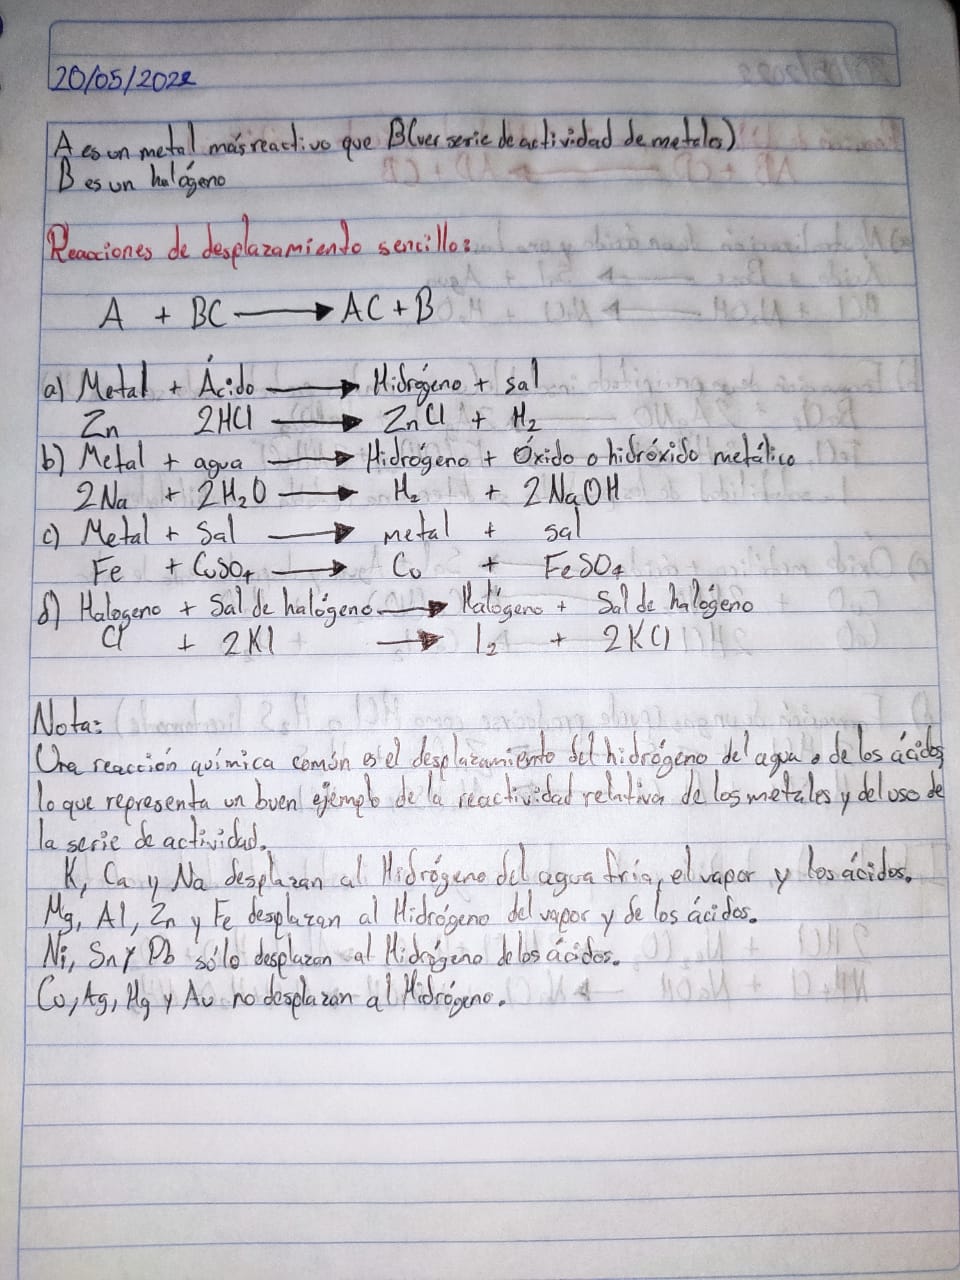 20/05/2022
A es un metal más reactivo que B(ver serie de actividad de metales)
B es un halógeno
Reacciones de desplazamiento sencillo:
A + BC → AC + B
a) Metal + Ácido → Hidrógeno + sal
Zn 2HCl → ZnCl + H₂
b) Metal + agua → Hidrógeno + Óxido o hidróxido metálico
2Na + 2H₂O → H₂ + 2NaOH
c) Metal + Sal → metal + sal
Fe + CuSO₄ → Cu + FeSO₄
d) Halogeno + Sal de halógeno → Halógeno + Sal de halógeno
Cl + 2KI → I₂ + 2KCl
Nota:
Una reacción química común es el desplazamiento del hidrógeno del agua o de los ácidos
lo que representa un buen ejemplo de la reactividad relativa de los metales y del uso de
la serie de actividad.
K, Ca y Na desplazan al Hidrógeno del agua fría, el vapor y los ácidos.
Mg, Al, Zn y Fe desplazan al Hidrógeno del vapor y de los ácidos.
Ni, Sn y Pb sólo desplazan al Hidrógeno de los ácidos.
Cu, Ag, Hg y Au no desplazan al Hidrógeno.